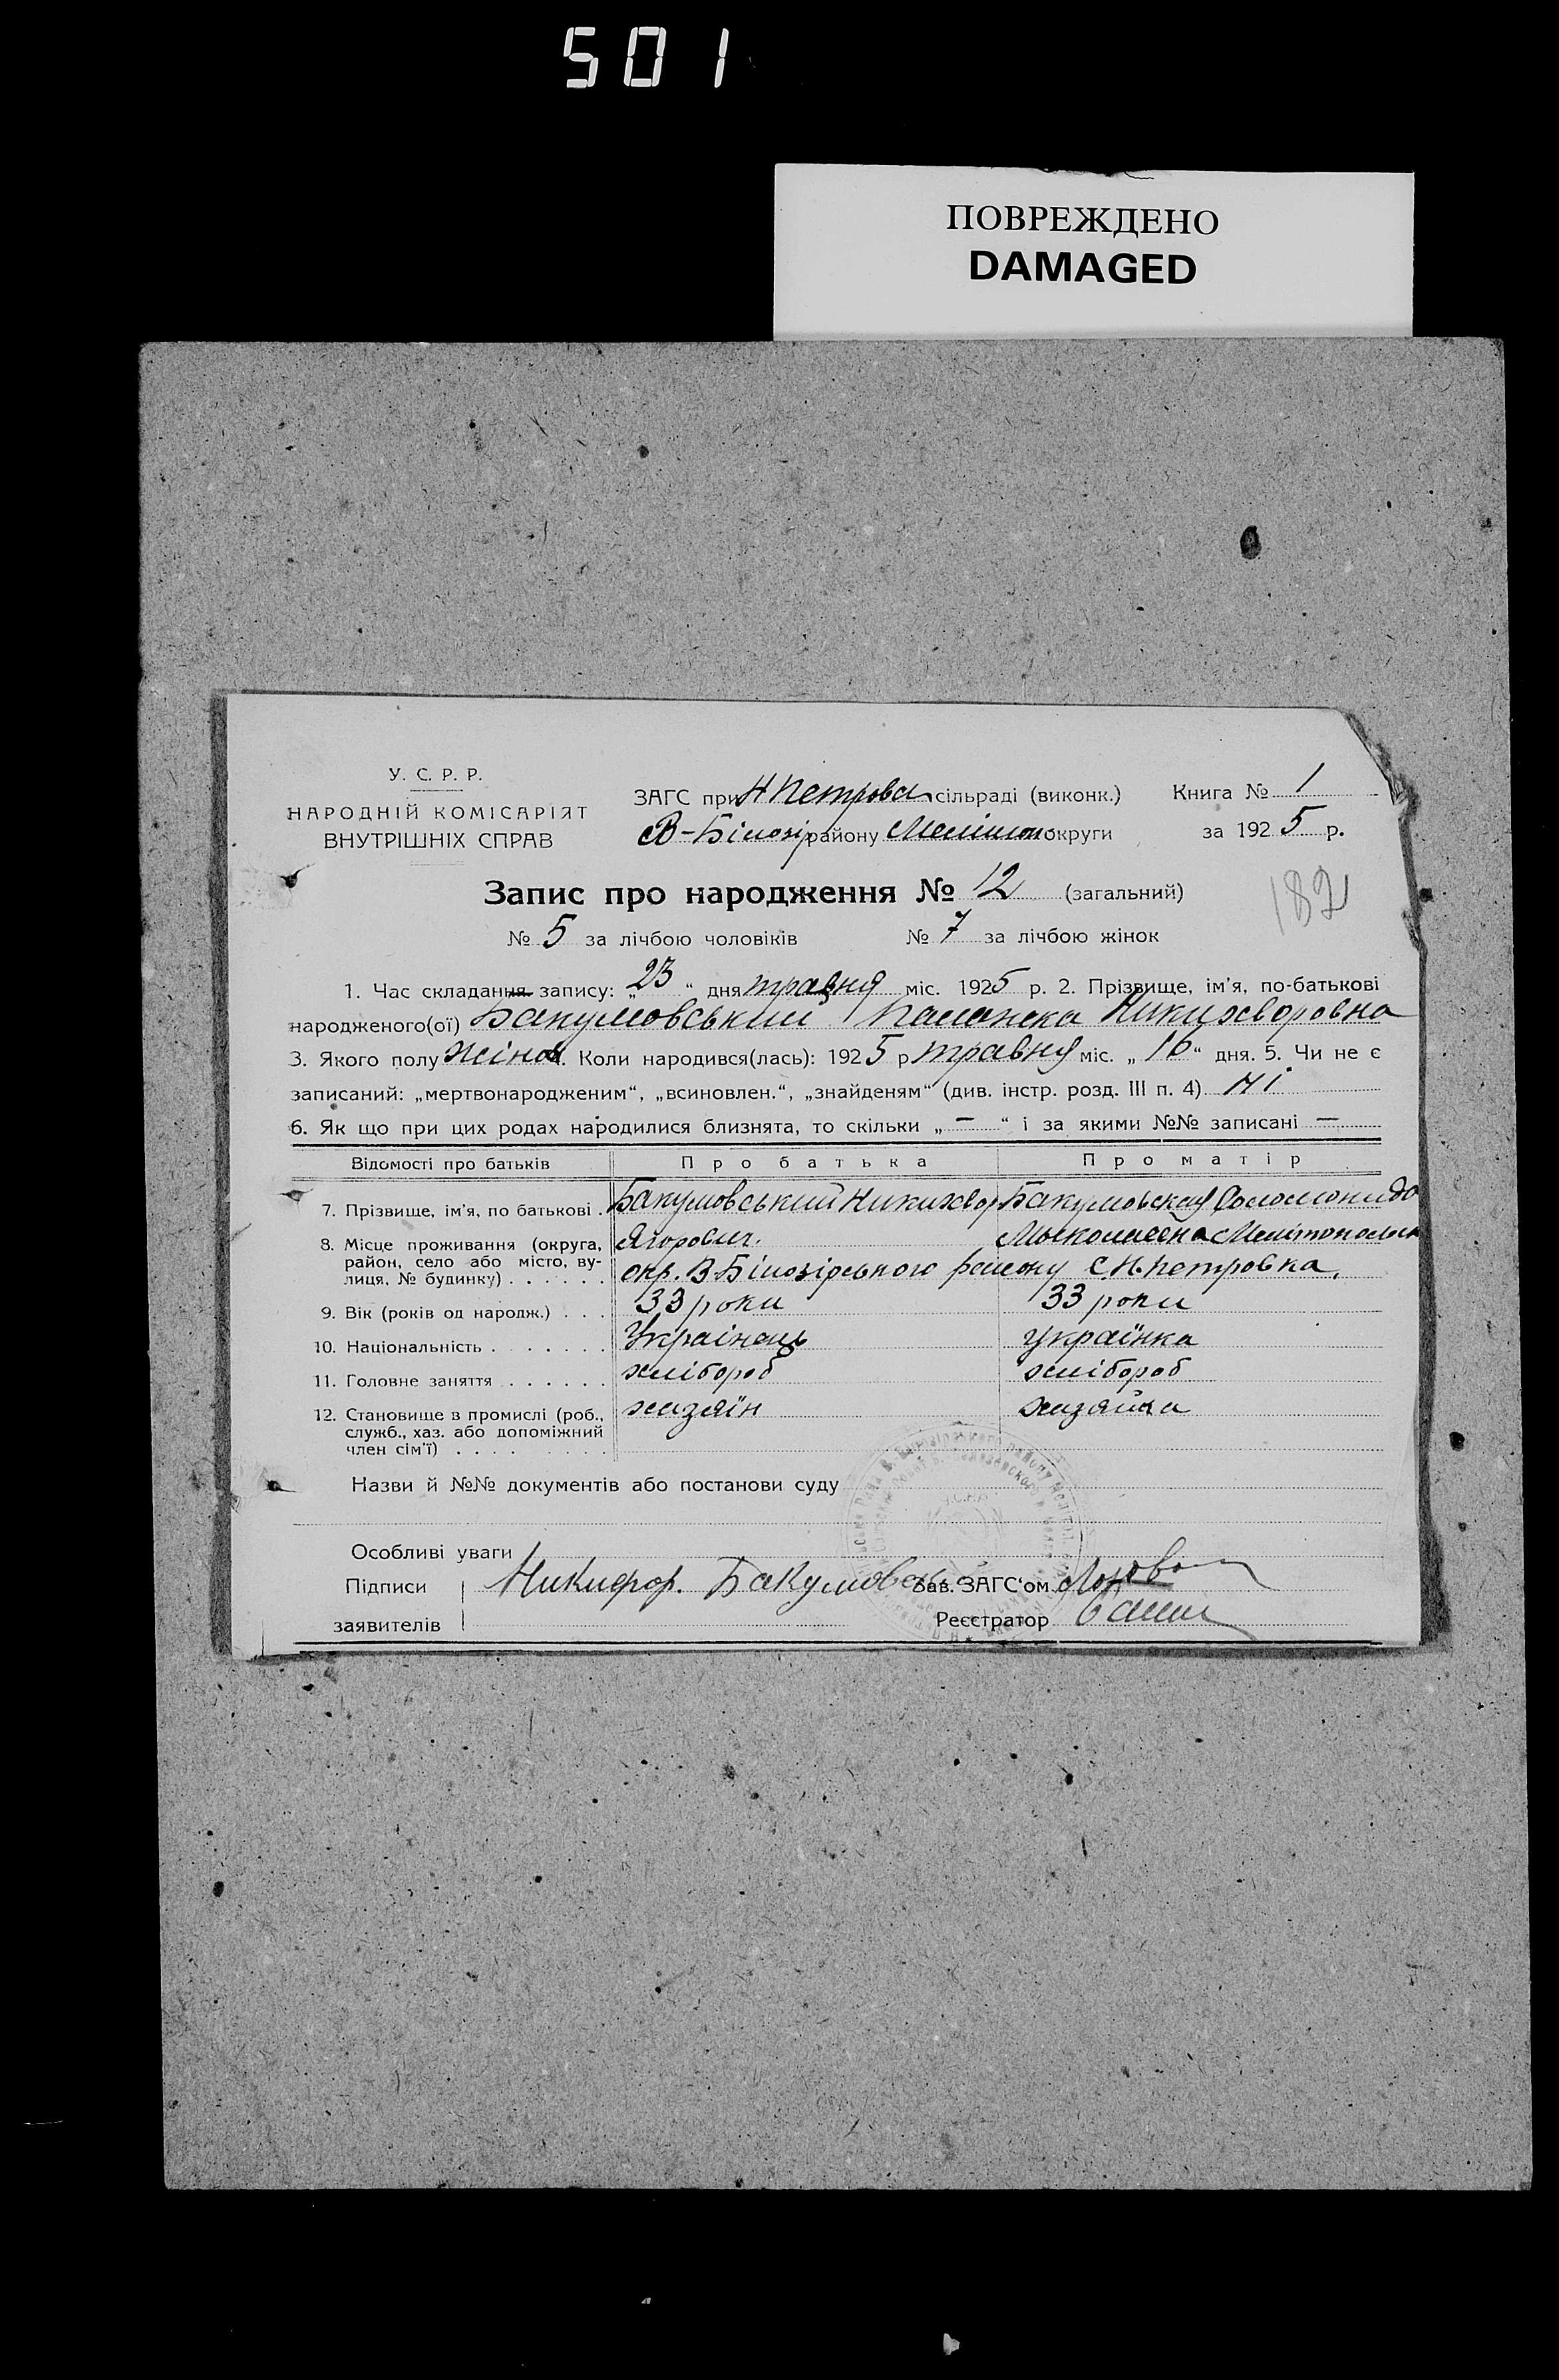 501
ПОВРЕЖДЕНО
DAMAGED
У. С. Р. Р.
НАРОДНІЙ КОМІСАРІЯТ
ВНУТРІШНІХ СПРАВ
ЗАГС при Н Петрова сільраді (виконк.) Книга № 1
В-Білозір району Меліноп округи за 1925 р.
Запис про народження № 12 (загальний)
182
№ 5 за лічбою чоловіків № 7 за лічбою жінок
1. Час складання запису: „23“ дня травня міс. 1925 р. 2. Прізвище, ім'я, по-батькові
народженого(ої) Бакумовський Палажка Никихворовна
3. Якого полу жіноч. Коли народився(лась): 1925 р травня міс. „16“ дня. 5. Чи не є
записаний: „мертвонародженим“, „всиновлен.“, „знайденям“ (див. інстр. розд. III п. 4) Ні
6. Як що при цих родах народилися близнята, то скільки „ — “ і за якими №№ записані —
Відомості про батьків Про батька Про матір
7. Прізвище, ім'я, по батькові . Бакумовський Никихвор Бакумовская Соломонида
8. Місце проживання (округа, Ягорович. Мыколаевна Мелітопольск
район, село або місто, ву-
лиця, № будинку) . . . . . . окр. В-Білозірського району С. Н. Петровка.
9. Вік (років од народж.) . . . 33 роки 33 роки
10. Національність . . . . . . . Украінець украінка
11. Головне заняття . . . . . . хлібороб хлібороб
12. Становище в промислі (роб., хазяїн хазяйка
служб., хаз. або допоміжний
член сім'ї) . . . . . . . .
Назви й №№ документів або постанови суду
Особливі уваги
Підписи Никифор. Бакумовськ Зав. ЗАГС'ом
заявителів Реєстратор